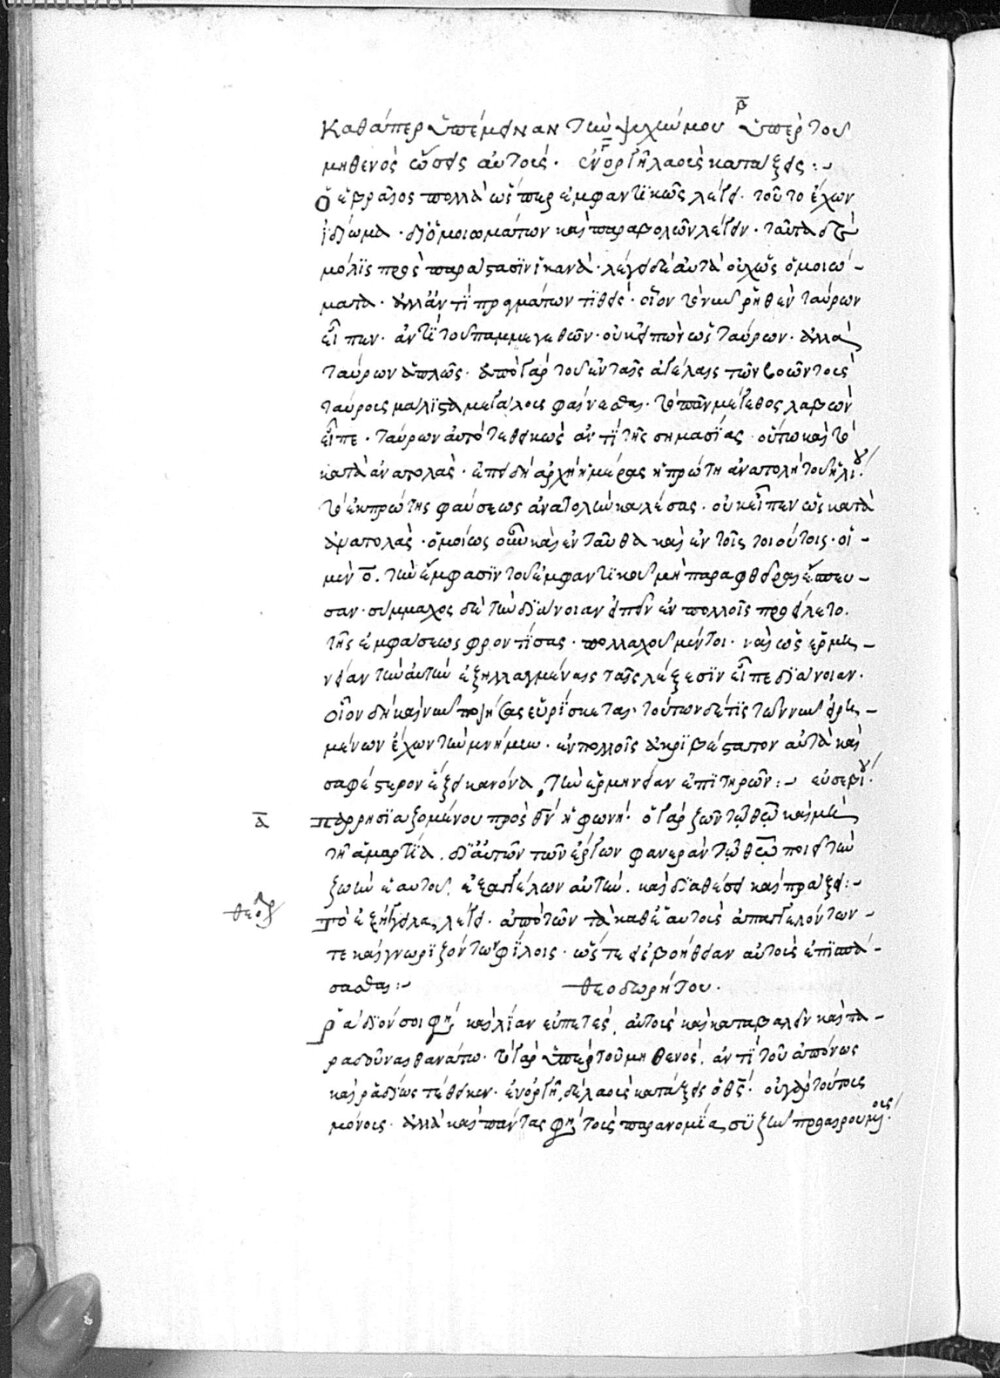 β
καθάπερ ὑπέμειναν τὴν ψυχήν μου ὑπὲρ τοῦ
μηθενὸς σώσεις αὐτούς. ἐν ὀργῇ λαοὺς κατάξεις:~
Ὁ ἑβραῖος πολλὰ ὥσπερ ἐμφαντικῶς λέγει. τοῦτο ἔχων
ἰδίωμα. δι' ὁμοιωμάτων καὶ παραβολῶν λέγειν. ταῦτα δὲ
μόλις πρὸς παράστασιν ἱκανά. λέγει δὲ αὐτὰ οὐχ ὡς ὁμοιώ-
ματα. ἀλλ' ἀντὶ πραγμάτων τίθει. οἷον τὸ νῦν ῥηθὲν ταύρων
εἶπεν. ἀντὶ τοῦ παμμεγεθῶν. οὐκ εἰπὼν ὡς ταύρων. ἀλλὰ
ταύρων ἁπλῶς. ἀπὸ γὰρ τοῦ ἐν ταῖς ἀγέλαις τῶν βοῶν τοὺς
ταύρους μάλιστα μεγάλους φαίνεσθαι. τὸ πᾶν μέγεθος λαβὼν
εἶπε. ταύρων αὐτὸ τεθεικὼς ἀντὶ τῆς σημασίας. οὕτω καὶ τὸ
κατὰ ἀνατολάς. ἐπειδὴ ἀρχὴ ἡμέρας ἡ πρώτη ἀνατολὴ τοῦ ἡλίου.
τὸ ἐκ πρώτης φαύσεως ἀνατολὴν καλέσας. οὐκ εἶπεν ὡς κατὰ
ἀνατολάς. ὁμοίως οὖν καὶ ἐνταῦθα καὶ ἐν τοῖς τοιούτοις. οἱ
μὲν ο̄. τὴν ἔμφασιν τοῦ ἐμφαντικοῦ μὴ παραφθεῖραι ἔσπευ-
σαν. σύμμαχος δὲ τὴν διάνοιαν εἰπεῖν ἐν πολλοῖς προείλετο.
τῆς ἐμφάσεως φροντίσας. πολλαχοῦ μέντοι. καὶ ὡς ἑρμη-
νείαν τὴν αὐτὴν ἐξηλλαγμέναις ταῖς λέξεσιν εἶπε διάνοιαν.
οἷον δὴ καὶ νῦν ποιήσας εὑρίσκεται. τούτων δέ τις τῶν νῦν εἰρη-
μένων ἔχων τὴν μνήμην. ἐν πολλοῖς ἀκριβέστατον αὐτὰ καὶ
σαφέστερον ἕξει κανόνα, τὴν ἑρμηνείαν ἐπιτηρῶν:~ εὐσεβίου.
α̅ παρρησιαζομένου πρὸς θν̅ ἡ φωνή. ὁ γὰρ ζῶν τῷ θῶ καὶ μὴ
τῇ ἁμαρτίᾳ. δι' αὐτῶν τῶν ἔργων φανερὰν τῷ θεῷ ποιεῖ τὴν
ζωὴν ἑαυτοῦ. ἐξαγγέλλων αὐτήν. καὶ διαθέσει καὶ πράξει:~
θεοδρ τὸ ἐξήγγειλα, λέγει. ἀπὸ τῶν τὰ καθ' ἑαυτοὺς ἀπαγγελόντων
τε καὶ γνωριζόντων φίλοις. ὥστε εἰς βοήθειαν αὐτοὺς ἐπισπά-
σασθαι:~ θεοδωρήτου.
ῥάδιόν σοι φησὶ, καὶ λίαν εὐπετές, αὐτοὺς καὶ καταβαλεῖν καὶ πα-
ραδοῦναι θανάτῳ. τὸ γὰρ ὑπὲρ τοῦ μηθενός, ἀντὶ τοῦ ἀπόνως
καὶ ῥαδίως τέθεικεν. ἐν ὀργῇ, δὲ λαοὺς κατάξεις ὁ θς̅. οὐ γὰρ τούτους
μόνους. ἀλλὰ καὶ πάντας φησὶ τοὺς παρανομίᾳ συζῆν προαιρουμένους.